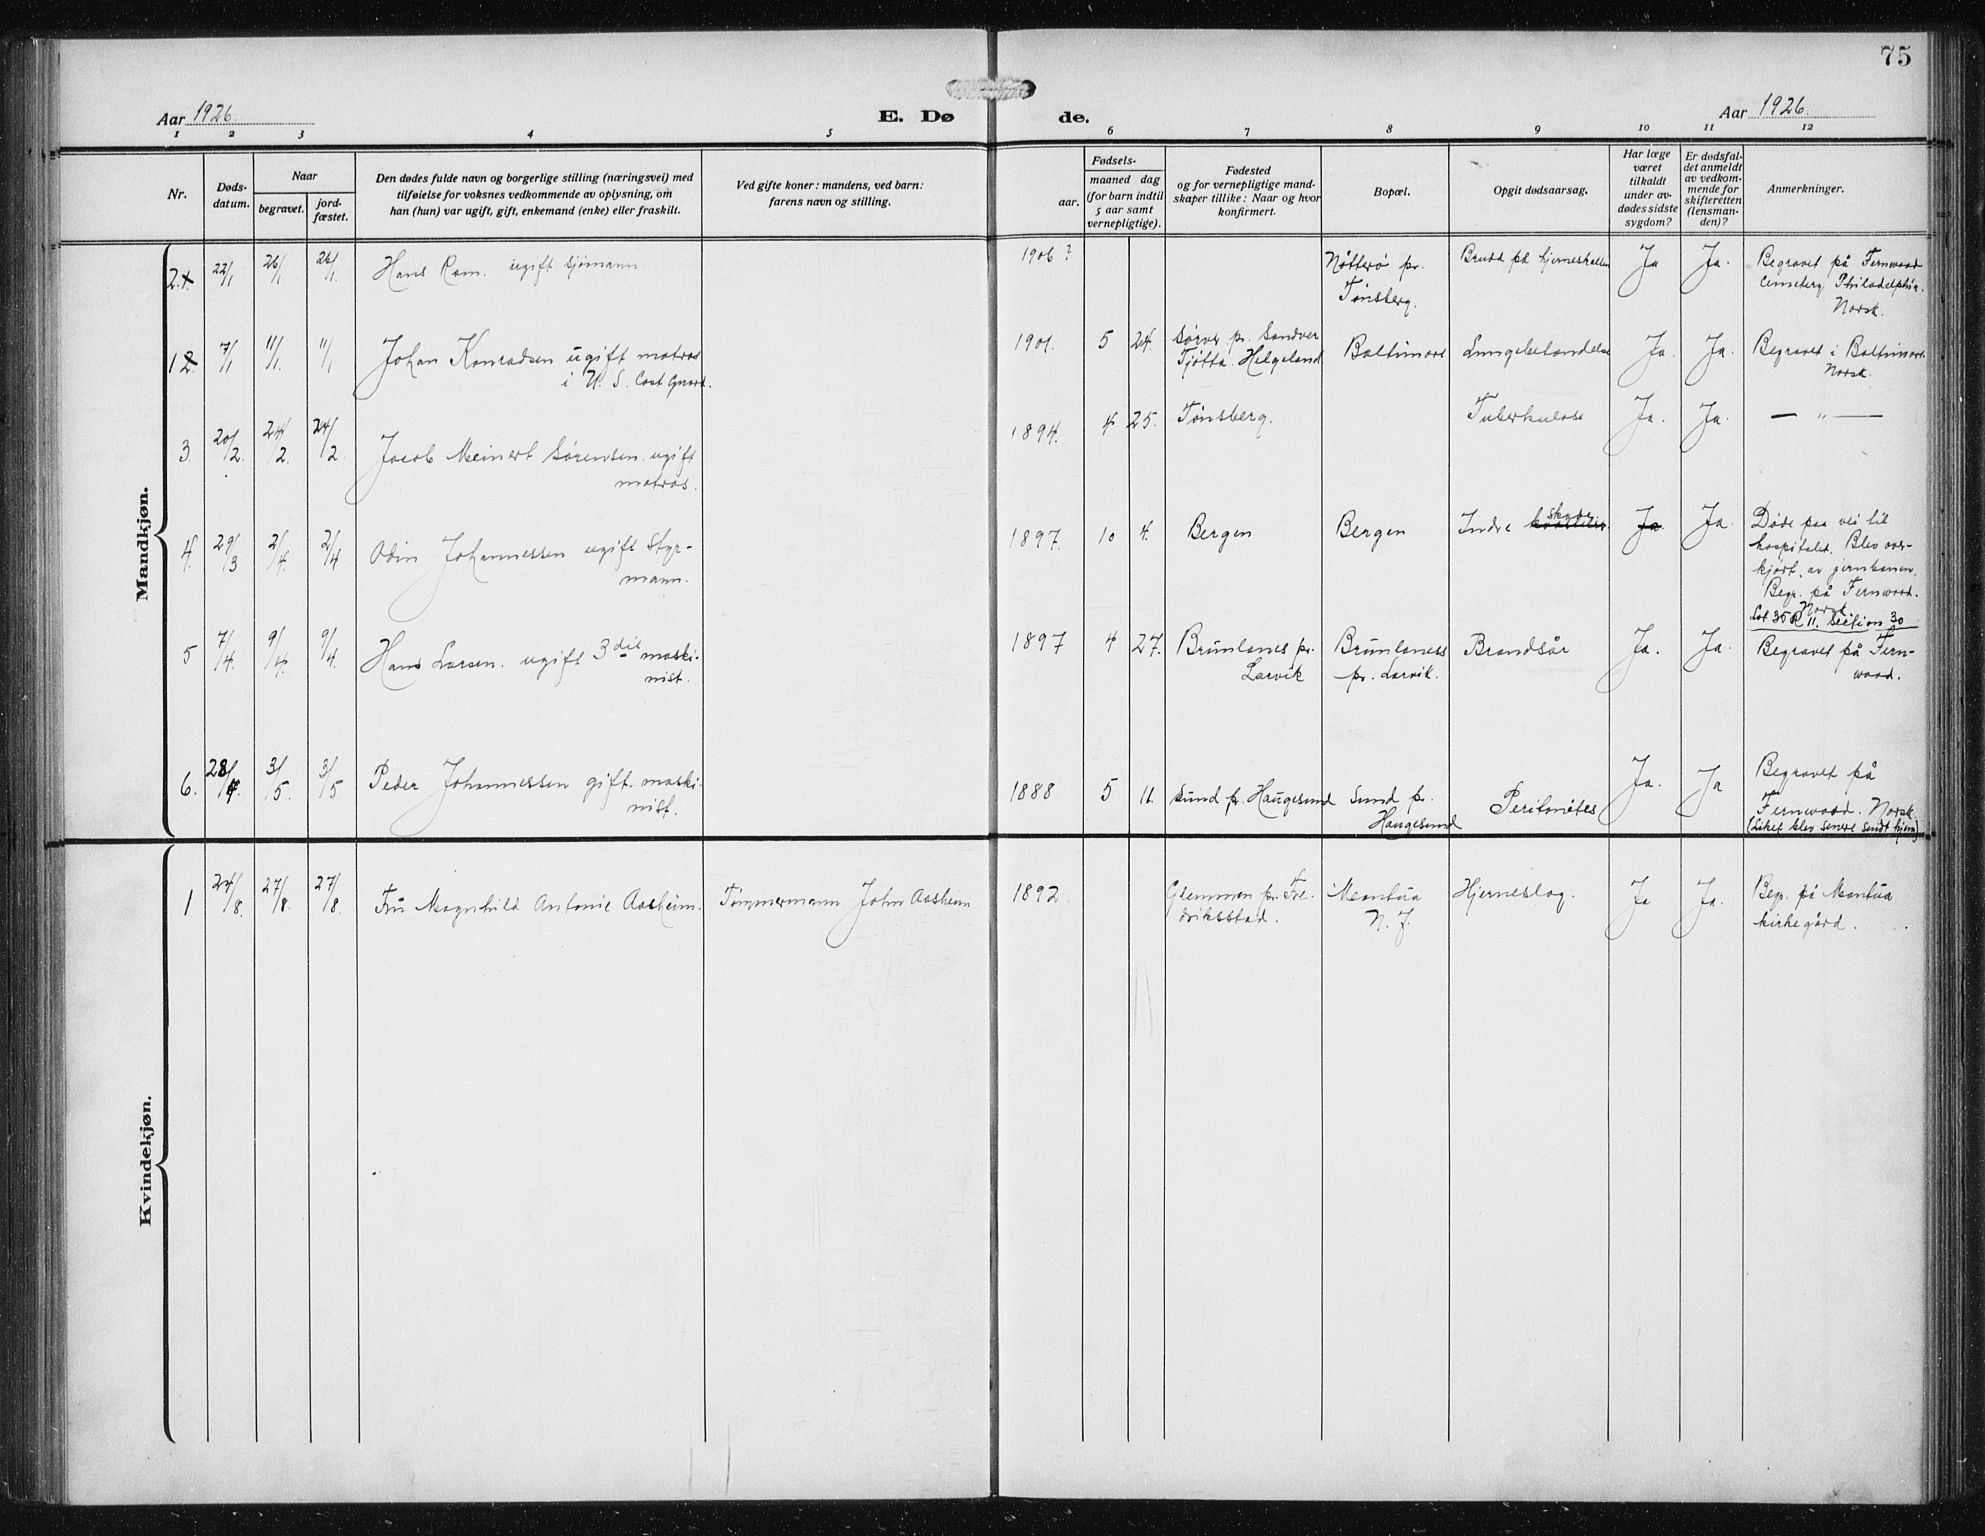 75
Aar 1926. E. Dø de. Aar 1926.
1 2 3 4 5 6 7 8 9 10 11 12
Nr.
Døds-
datum.
Naar
begravet.
jord-
fæstet.
Den dødes fulde navn og borgerlige stilling (næringsvei) med
tilføielse for voksnes vedkommende av oplysning, om
han (hun) var ugift, gift, enkemand (enke) eller fraskilt.
Ved gifte koner: mandens, ved barn:
farens navn og stilling.
Fødsels-
aar.
maaned dag
(for barn indtil
5 aar samt
vernepligtige).
Fødested
og for vernepligtige mand-
skaper tillike: Naar og hvor
konfirmert.
Bopæl.
Opgit dødsaarsag.
Har læge
været
tilkaldt
under av-
dødes sidste
sygdom?
Er dødsfal-
det anmeldt
av vedkom-
mende for
skifteretten
(lensman-
den)?
Anmerkninger.
Mandkjøn.
2. 22/1 26/1 26/1 Hans Ram. ugift sjømann 1906 ? Nøtterø pr.
Tønsberg. Brudd på hjerneskallen Ja Ja. Begravet på Fernwood
Cemetery Philadelphia.
Norsk.
1 7/1 11/1 11/1 Johan Konradsen ugift matros
i U. S. Cost Guard. 1901. 5 24. Sørvær pr. Sandver
Tjøtta. Helgeland Baltimore Lungebetændelse Ja. Ja. Begravet i Baltimore
Norsk.
3. 20/2. 24/2. 24/2. Jacob Meinert Sørensen. ugift
matros. 1894. 4 25. Tønsberg. Tuberkulose Ja. Ja. — " —
4. 29/3 2/4. 2/4 Odin Johannessen ugift Styr-
mann. 1897. 10 4. Bergen Bergen Indre skader Ja Ja Døde paa vei til
hospitalet. Blev over-
kjørt. av jernbanen.
Begr. på Fernwood.
Norsk
Lot 35 R 11. Section 30
5 7/4. 9/4. 9/4. Hans Larsen. ugift 3die maski-
nist. 1897 4 27. Brunlanes pr.
Larvik Brunlaness
pr. Larvik. Brandsår Ja. Ja. Begravet på Fern-
wood.
6. 28/4. 3/5. 3/5 Peder Johannessen gift. maski-
nist. 1888 5 11. Sund pr. Haugesund Sund pr.
Haugesund Peritonites Ja. Ja Begravet på
Fernwood. Norsk.
(Liket blev senere sendt hjem)
Kvindekjøn.
1 24/8. 27/8. 27/8. Fru Magnhild Antonie Aasheim. Tømmermann John Aasheim 1892. Glemmen pr. Fre-
driksstad. Mantua
N. J. Hjerneslag. Ja Ja. Begr. på Mantua
kirkegård.